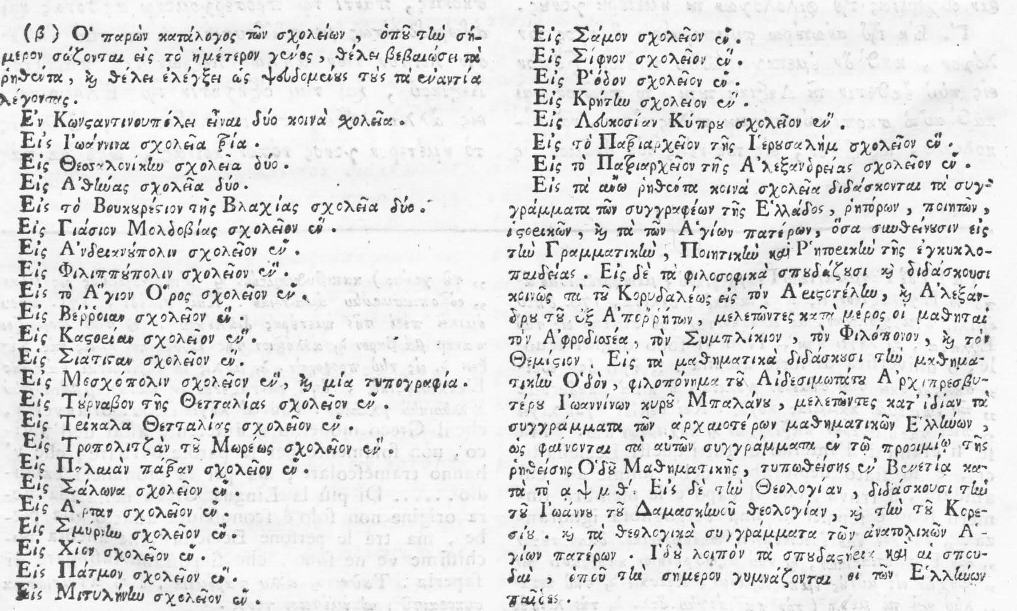 (β) Ο' παρὼν κατάλογος τῶν σχολείων, ὁποῦ τὴν σή-
μερον σώζονται εἰς τὸ ἡμέτερον γένος, θέλει βεβαιώσει τὰ
ῥηθέντα, καὶ θέλει ἐλέγξει ὡς ψευδομένους τοὺς τὰ ἐναντία
λέγοντας.
Ε'ν Κωνσαντινουπόλει εἶναι δύο κοινὰ σχολεῖα.
Εἰς Ι'ωάννινα σχολεῖα τρία.
Εἰς Θεσσαλονίκην σχολεῖα δύο.
Εἰς Α'θήνας σχολεῖα δύο.
Εἰς τὸ Βουκυρέστιον τῆς Βλαχίας σχολεῖα δύο.
Εἰς Γιάσιον Μολδοβίας σχολεῖον ἕν.
Εἰς Α'νδριανύπολιν σχολεῖον ἕν.
Εἰς Φιλιππύπολιν σχολεῖον ἕν.
Εἰς τὸ Α῞γιον Ο῎ρος σχολεῖον ἕν.
Εἰς Βέρροιαν σχολεῖον ἕν.
Εἰς Καστορίαν σχολεῖον ἕν.
Εἰς Σιάτισαν σχολεῖον ἕν.
Εἰς Μοσχόπολιν σχολεῖον ἕν, καὶ μία τυπογραφία.
Εἰς Τύρναβον τῆς Θετταλίας σχολεῖον ἕν.
Εἰς Τρίκαλα Θετταλίας σχολεῖον ἕν.
Εἰς Τροπολιτζὰν τοῦ Μωρέως σχολεῖον ἕν.
Εἰς Παλαιὰν πάτραν σχολεῖον ἕν.
Εἰς Σάλωνα σχολεῖον ἕν.
Εἰς Α῎ρταν σχολεῖον ἕν.
Εἰς Σμύρνην σχολεῖον ἕν.
Εἰς Χίον σχολεῖον ἕν.
Εἰς Πάτμον σχολεῖον ἕν.
Εἰς Μιτυλήνην σχολεῖον ἕν.
Εἰς Σάμον σχολεῖον ἕν.
Εἰς Σίφνον σχολεῖον ἕν.
Εἰς Ρ'όδον σχολεῖον ἕν.
Εἰς Κρήτην σχολεῖον ἕν.
Εἰς Λευκοσίαν Κύπρου σχολεῖον ἕν.
Εἰς τὸ Πατριαρχεῖον τῆς Γερυσαλὴμ σχολεῖον ἕν.
Εἰς τὸ Πατριαρχεῖον τῆς Α'λεξανδρείας σχολεῖον ἕν.
Εἰς τὰ ἄνω ῥηθέντα κοινὰ σχολεῖα διδάσκονται τὰ συγ-
γράμματα τῶν συγγραφέων τῆς Ε'λλάδος, ῥητόρων, ποιητῶν,
ἱστορικῶν, καὶ τὰ τῶν Α'γίων πατέρων, ὅσα συνθείνυσιν εἰς
τὴν Γραμματικὴν, Ποιητικὴν καὶ Ρ'ητορικὴν τῆς ἐγκυκλο-
παιδείας. Εἰς δὲ τὰ φιλοσοφικὰ σπυδάζυσι καὶ διδάσκουσι
κοινῶς τὰ τοῦ Κορυδαλέως εἰς τὸν Α'ριστοτέλην, καὶ Α'λεξάν-
δρου τοῦ ἐξ Α'ποῤῥήτων, μελετῶντες κατὰ μέρος οἱ μαθηταὶ
τὸν Α'φροδισέα, τὸν Συμπλίκιον, τὸν Φιλόπονον, καὶ τὸν
Θεμίσιον. Εἰς τὰ μαθηματικὰ διδάσκυσι τὴν μαθημα-
τικὴν Ο'δὸν, φιλοπόνημα τοῦ Αἰδεσιμωτάτυ Α'ρχιπρεσβυ-
τέρυ Ι'ωαννίνων κυροῦ Μπαλάνυ, μελετῶντες κατ' ἰδίαν τὰ
συγγράμματα τῶν ἀρχαιοτέρων μαθηματικῶν Ε'λλήνων,
ὡς φαίνονται τὰ αὐτῶν συγγράμματα ἐν τῷ προοιμίῳ τῆς
ῥηθείσης Ο'δοῦ Μαθηματικῆς, τυπωθείσης ἐν Βενετίᾳ κα-
τὰ τὸ α ψ μ θ. Εἰς δὲ τὴν Θεολογίαν, διδάσκουσι τὴν
τοῦ Ι'ωάννυ τοῦ Δαμασκηνοῦ θεολογίαν, καὶ τὴν τοῦ Κορε-
σίυ, καὶ τὰ θεολογικὰ συγράμματα τῶν ἀνατολικῶν Α'-
γίων πατέρων. Ι'δοὺ λοιπὸν τὰ σπυδαστήρια καὶ αἱ σπου-
δαὶ, ὁποῦ τὴν σήμερον γυμνάζονται οἱ τῶν Ε'λλήνων
παῖδες.